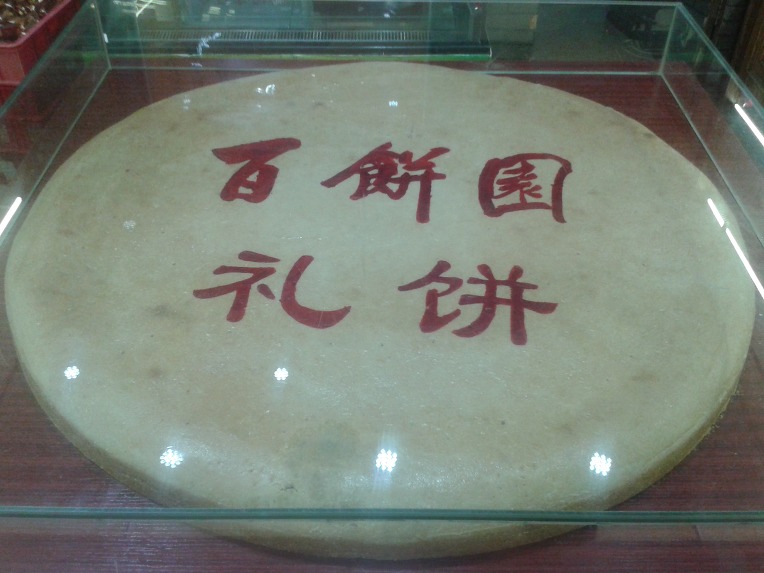 百餅園
礼饼